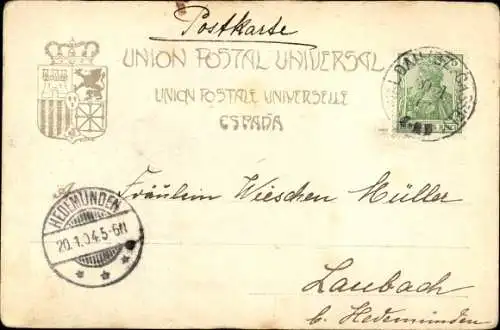 Postkarte
UNION POSTAL UNIVERSAL
UNION POSTALE UNIVERSELLE
ESPAÑA
Fräulein Wieschen Müller
HEDEMÜNDEN
20.1.04.5-6N
Laubach
b. Hedemünden